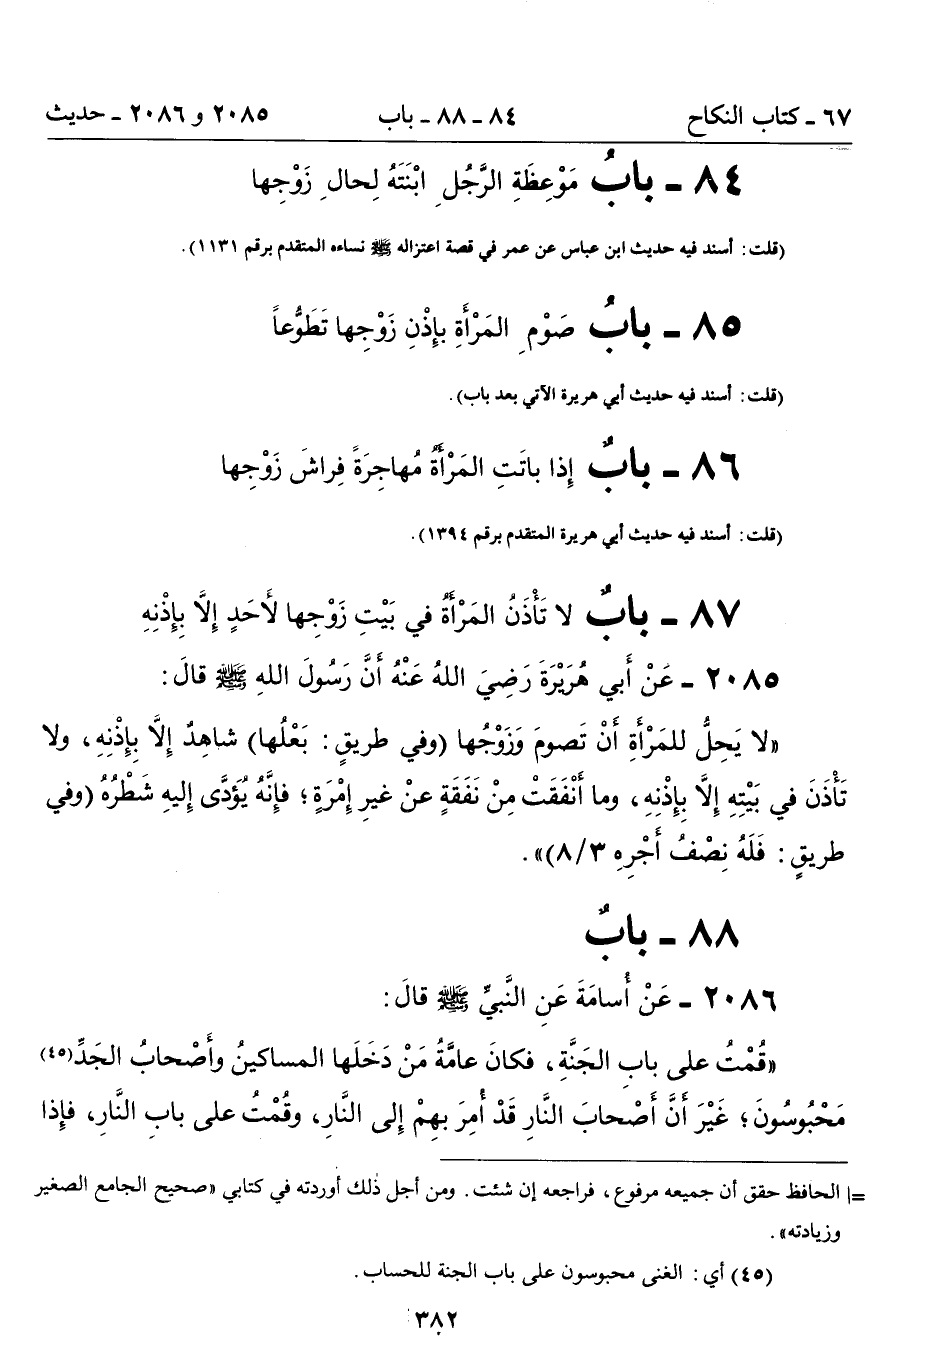 ٦٧ ـ كتاب النكاح ٨٤ ـ ٨٨ ـ باب ٢٠٨٥ و ٢٠٨٦ ـ حديث
٨٤ ـ بابُ مَوْعِظَةِ الرَّجُلِ ابْنَتَهُ لِحالِ زَوْجِها
(قلت: أسند فيه حديث ابن عباس عن عمر في قصة اعتزاله ﷺ نساءه المتقدم برقم ١١٣١).
٨٥ ـ بابُ صَوْمِ المَرْأَةِ بإِذْنِ زَوْجِها تَطَوُّعاً
(قلت: أسند فيه حديث أبي هريرة الآتي بعد باب).
٨٦ ـ بابٌ إِذا باتَتِ المَرْأَةُ مُهاجِرَةً فِراشَ زَوْجِها
(قلت: أسند فيه حديث أبي هريرة المتقدم برقم ١٣٩٤).
٨٧ ـ بابٌ لا تَأْذَنُ المَرْأَةُ في بَيْتِ زَوْجِها لأَحَدٍ إِلَّا بِإِذْنِهِ
٢٠٨٥ ـ عَنْ أَبي هُرَيْرَةَ رَضِيَ اللهُ عَنْهُ أَنَّ رَسُولَ اللهِ ﷺ قالَ:
«لا يَحِلُّ للمَرْأَةِ أَنْ تَصومَ وَزَوْجُها (وفي طريقٍ: بَعْلُها) شاهِدٌ إِلَّا بِإِذْنِهِ، ولا
تَأْذَنَ في بَيْتِهِ إِلَّا بِإِذْنِهِ، وما أَنْفَقَتْ مِنْ نَفَقَةٍ عنْ غيرِ إِمْرَةٍ؛ فإِنَّهُ يُؤَدَّى إليهِ شَطْرُهُ (وفي
طريقٍ: فَلَهُ نِصْفُ أَجْرِهِ ٨/٣)».
٨٨ ـ بابٌ
٢٠٨٦ ـ عَنْ أُسامَةَ عَنِ النَّبيِّ ﷺ قالَ:
«قُمْتُ على بابِ الجَنَّةِ، فكانَ عامَّةُ مَنْ دَخَلَها المساكينُ وأَصْحابُ الجَدِّ(٤٥)
مَحْبُوسُونَ؛ غَيْرَ أَنَّ أَصْحابَ النَّارِ قَدْ أُمِرَ بِهِمْ إِلى النَّارِ، وقُمْتُ على بابِ النَّارِ، فإِذا
=| الحافظ حقق أن جميعه مرفوع، فراجعه إن شئت. ومن أجل ذلك أوردته في كتابي «صحيح الجامع الصغير
وزيادته».
(٤٥) أي: الغنى محبوسون على باب الجنة للحساب.
٣٨٢